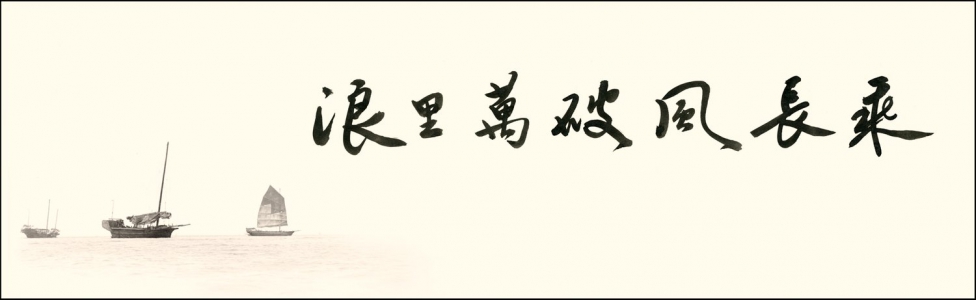 乘長風破萬里浪